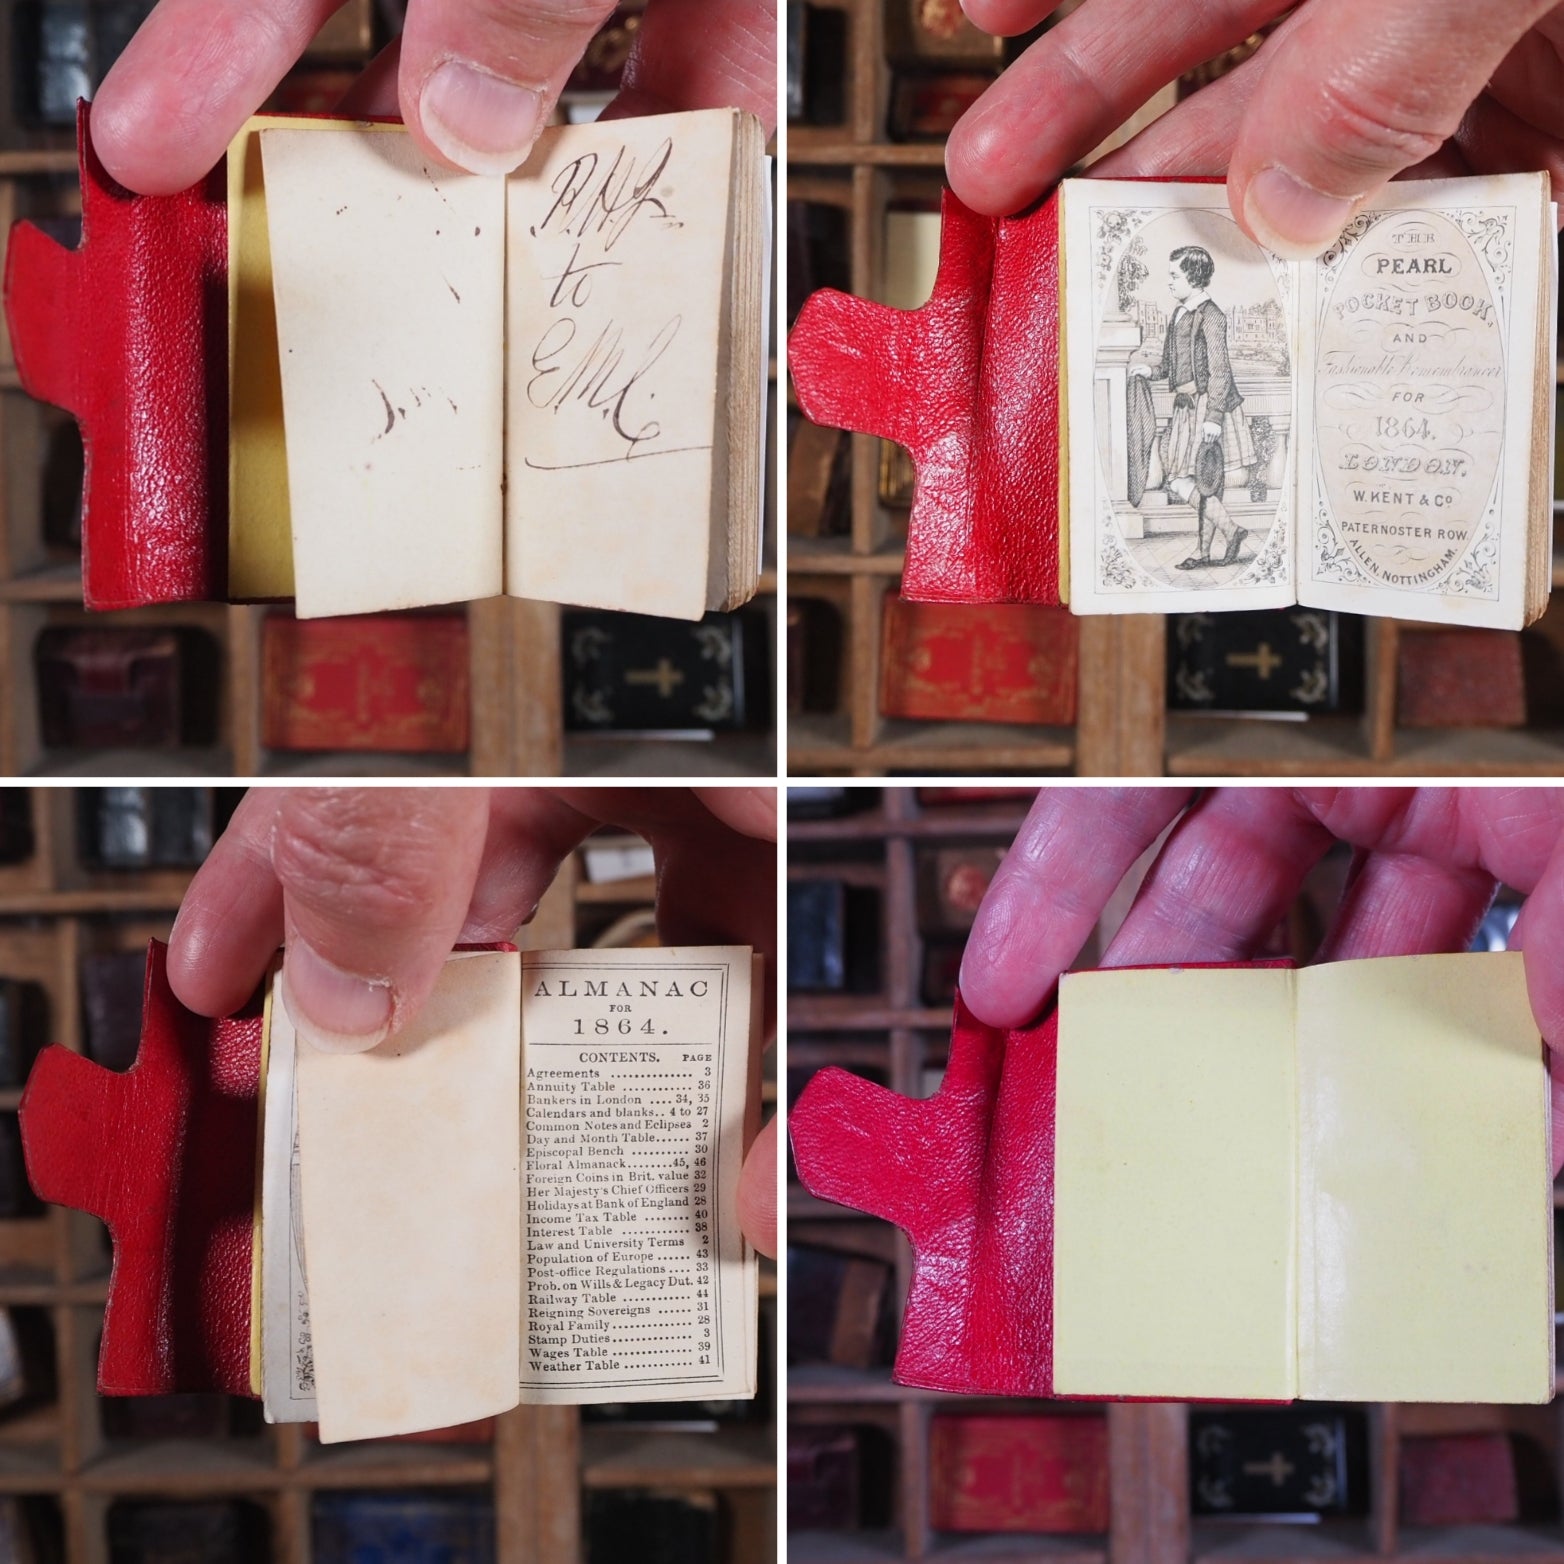 to
E.M.C.
THE
PEARL
POCKET BOOK,
AND
Fashionable Remembrancer
FOR
1864.
LONDON.
W. KENT & Co
PATERNOSTER ROW.
ALLEN, NOTTINGHAM.
ALMANAC
FOR
1864.
CONTENTS. PAGE
Agreements .............. 3
Annuity Table ............ 36
Bankers in London .... 34, 35
Calendars and blanks.. 4 to 27
Common Notes and Eclipses 2
Day and Month Table...... 37
Episcopal Bench .......... 30
Floral Almanack........45, 46
Foreign Coins in Brit. value 32
Her Majesty's Chief Officers 29
Holidays at Bank of England 28
Income Tax Table ........ 40
Interest Table ........... 38
Law and University Terms 2
Population of Europe ...... 43
Post-office Regulations .... 33
Prob. on Wills & Legacy Dut. 42
Railway Table ............ 44
Reigning Sovereigns ...... 31
Royal Family.............. 28
Stamp Duties.............. 3
Wages Table .............. 39
Weather Table ............ 41